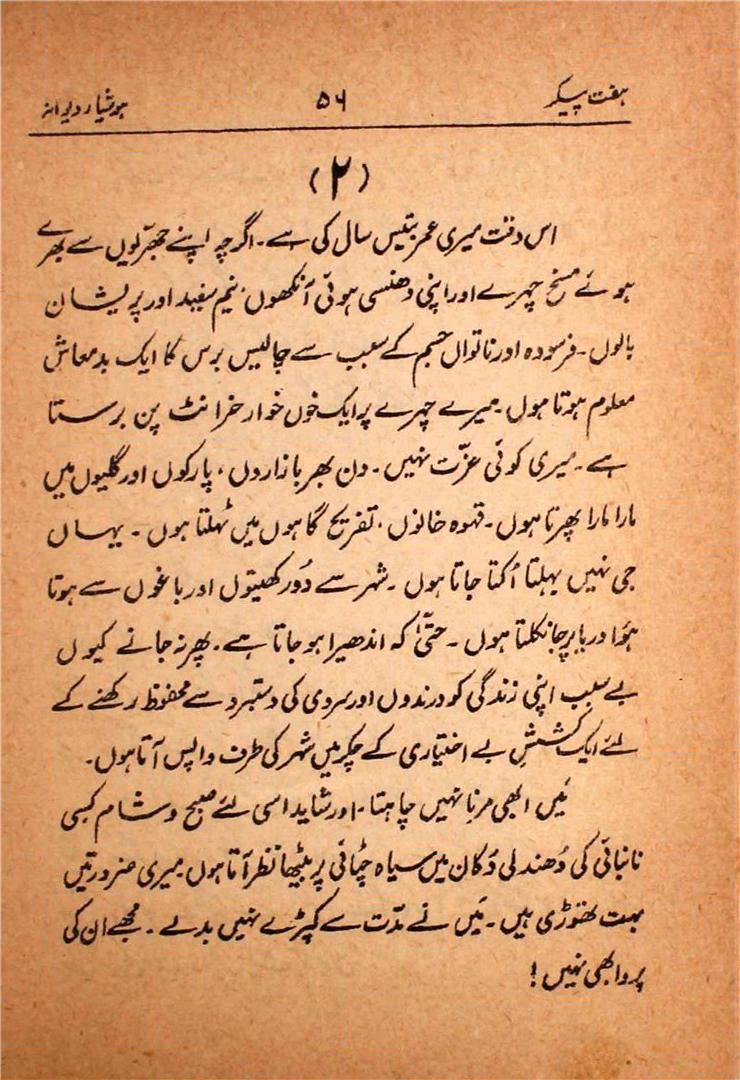 ہفت پیکر ۵۶ ہوشیار دیوانہ
(۲)
اس وقت میری عمر بتیس سال کی ہے۔ اگرچہ اپنے جھرّیوں سے بھرے
ہوئے مسخ چہرے اور اپنی دھنسی ہوئی آنکھوں، نیم سفید اور پریشان
بالوں۔ فرسودہ اور ناتواں جسم کے سبب سے چالیس برس کا ایک بدمعاش
معلوم ہوتا ہوں۔ میرے چہرے پر ایک خوں خوار خرانٹ پن برستا
ہے۔ میری کوئی عزّت نہیں۔ دن بھر بازاروں، پارکوں اور گلیوں میں
مارا مارا پھرتا ہوں۔ قہوہ خانوں، تفریح گاہوں میں ٹہلتا ہوں۔ یہاں
جی نہیں بہلتا اُکتا جاتا ہوں۔ شہر سے دُور کھیتوں اور باغوں سے ہوتا
ہؤا دریا پر جا نکلتا ہوں۔ حتّیٰ کہ اندھیرا ہو جاتا ہے۔ پھر نہ جانے کیوں
بے سبب اپنی زندگی کو درندوں اور سردی کی دستبرد سے محفوظ رکھنے کے
لئے ایک کششِ بے اختیاری کے چکر میں شہر کی طرف واپس آتا ہوں۔
مَیں ابھی مرنا نہیں چاہتا۔ اور شاید اسی لئے صبح و شام کسی
نانبائی کی دُھندلی دُکان میں سیاہ چٹائی پر بیٹھا نظر آتا ہوں۔ میری ضرورتیں
بہت تھوڑی ہیں۔ مَیں نے مدّت سے کپڑے نہیں بدلے۔ مجھے ان کی
پروا بھی نہیں!